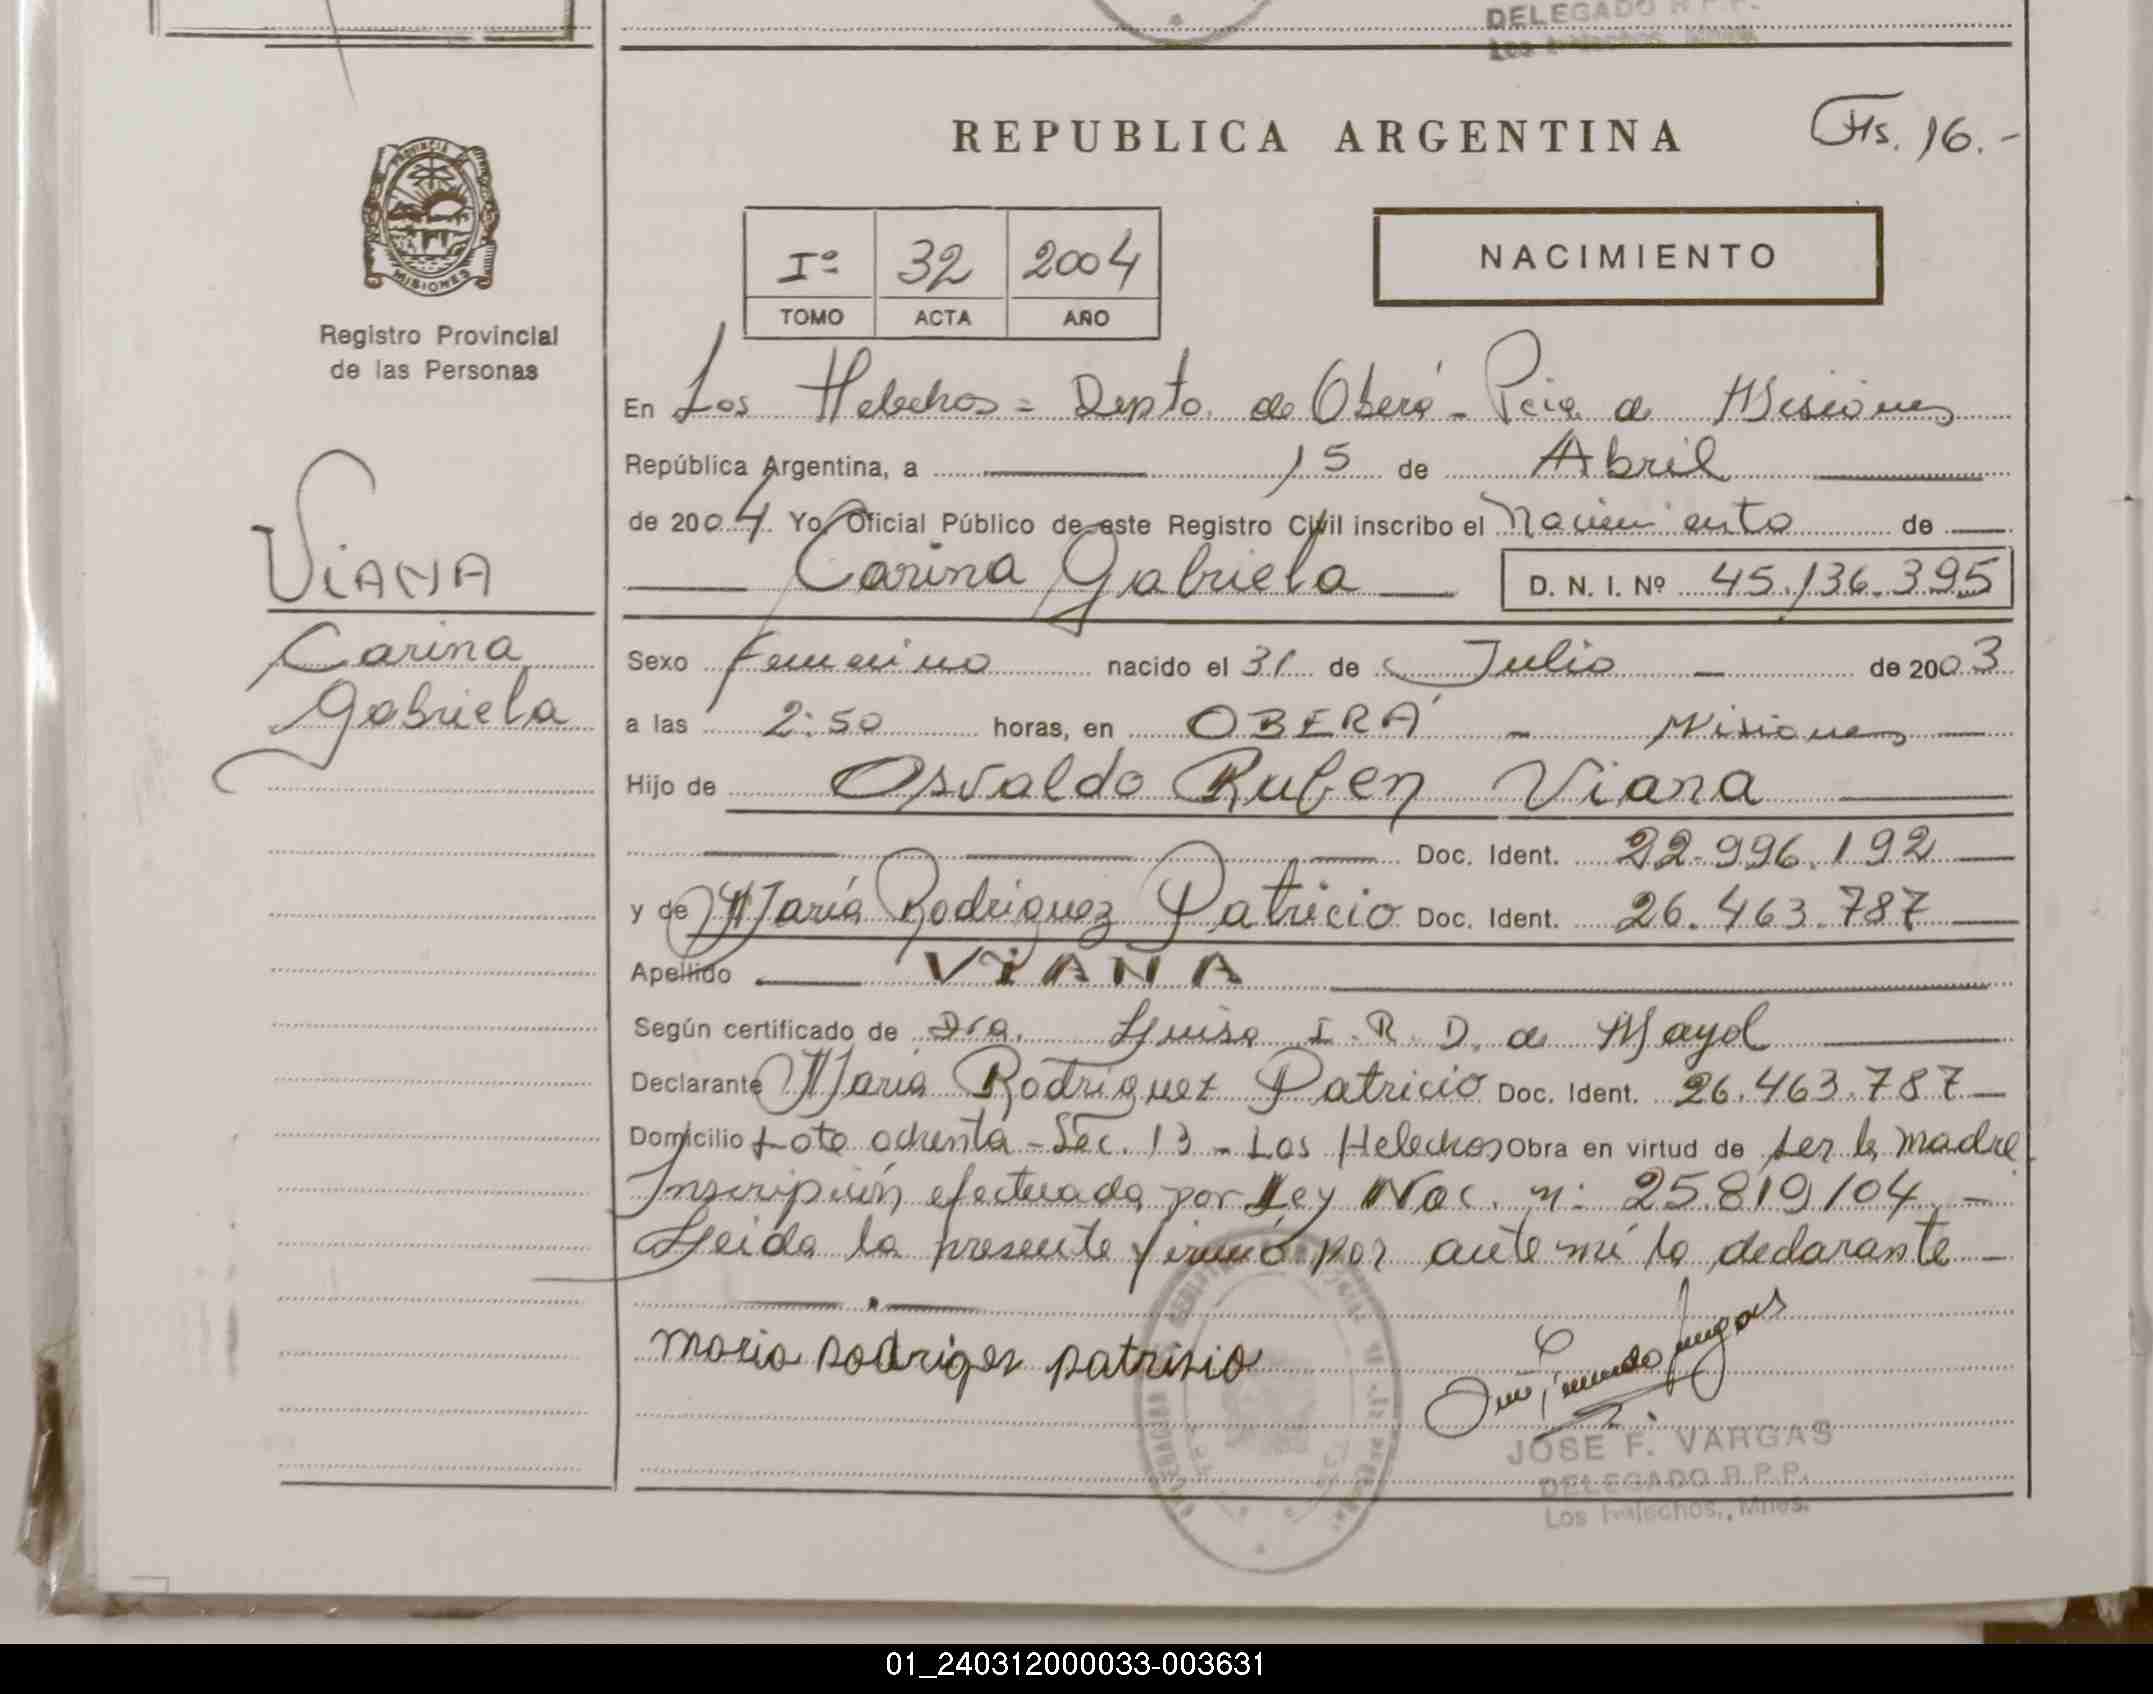 DELEGADO R.P.P.
REPUBLICA ARGENTINA
Fs. 16.-
PROVINCIA
MISIONES
Registro Provincial
de las Personas
Iº 32 2004
TOMO ACTA AÑO
NACIMIENTO
En Los Helechos = Depto. de Oberá - Pcia. de Misiones
República Argentina, a 15 de Abril
de 2004. Yo, Oficial Público de este Registro Civil inscribo el Nacimiento de
Carina Gabriela D. N. I. Nº 45.136.395
VIANA
Carina
Gabriela
Sexo Femenino nacido el 31 de Julio - de 2003
a las 2:50 horas, en OBERÁ - Misiones
Hijo de Osvaldo Ruben Viana
Doc. Ident. 22.996.192
y de María Rodriguez Patricio Doc. Ident. 26.463.787
Apellido VIANA
Según certificado de Dra. Luisa I. R. D. de Mayol
Declarante María Rodriguez Patricio Doc. Ident. 26.463.787
Domicilio Lote ochenta - Sec. 13 - Los Helechos Obra en virtud de ser la madre
Inscripción efectuada por Ley Nac. n: 25.819/04. -
Leida la presente firmó por ante mí la declarante -
maria rodriges patrisio
JOSE F. VARGAS
DELEGADO R.P.P.
Los Helechos, Mnes.
01_240312000033-003631